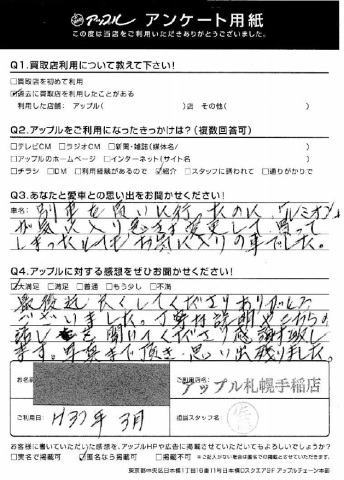 アップル アンケート用紙
この度は当店をご利用いただきありがとうございました。
Q1.買取店利用について教えて下さい!
□買取店を初めて利用
☑過去に買取店を利用したことがある
利用した店舗: アップル( )店 その他( )
Q2.アップルをご利用になったきっかけは?(複数回答可)
□テレビCM □ラジオCM □新聞・雑誌(媒体名/ )
□アップルのホームページ □インターネット(サイト名 )
□チラシ □DM □利用経験があるので ☑紹介 □スタッフに誘われて □通りがかりで
Q3.あなたと愛車との思い出をお聞かせください!
車名: 別車を買いに行ったのに、ルミオン
が気に入り急きょ変更して買って
しまったしーお気に入りの車でした。
Q4.アップルに対する感想をぜひお聞かせください!
☑大満足 □満足 □普通 □もう少し □不満
最後まで くしてくださりありがとう
ございました。丁寧な説明やこちらの
話しを聞いてくださり感謝致し
ます。写真まで頂き、思い出残りました。
お名前
ご利用店名: アップル札幌手稲店
ご利用日: H27年 3月
担当スタッフ名:
お客様に書いていただいた感想を、アップルHPや広告に掲載させていただいてもよろしいでしょうか?
□実名で掲載可 ☑匿名なら掲載可 □掲載不可 ※ご記入がない場合は匿名にて掲載とさせていただきます。
東京都中央区日本橋1丁目16番11号日本橋DスクエアBF アップルチェーン本部